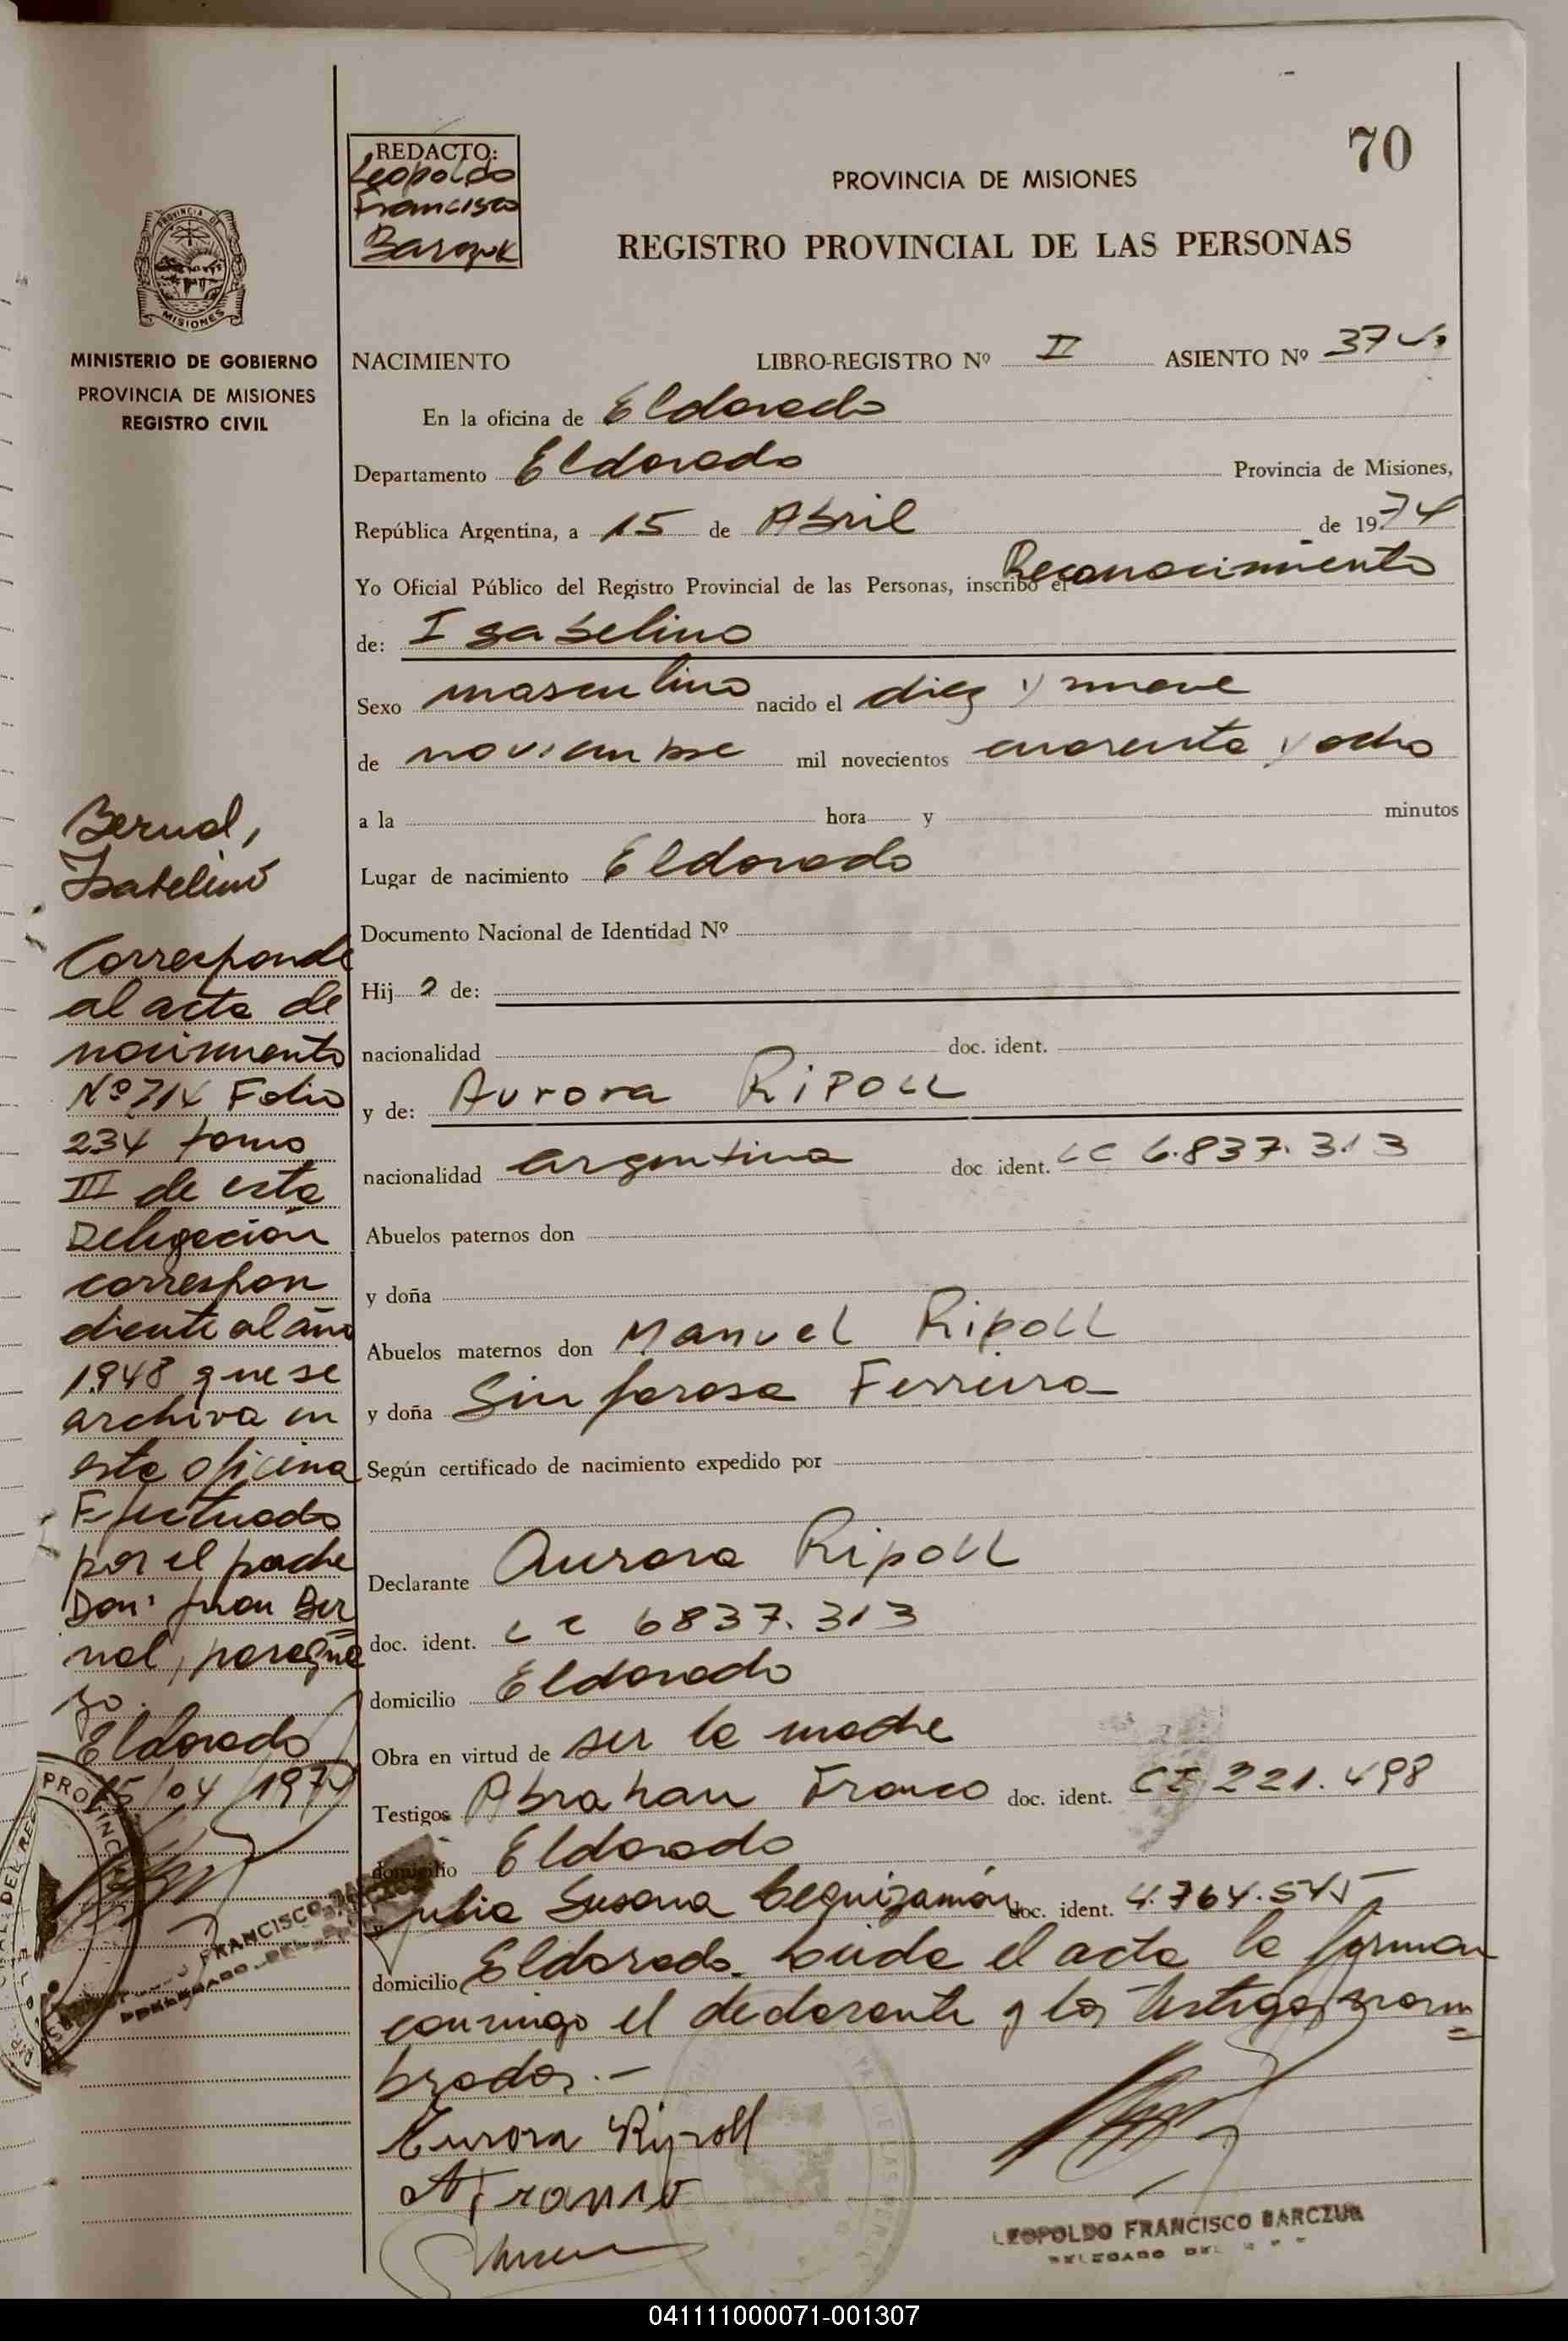 70
REDACTO:
Leopoldo
Francisco
Barczuk
PROVINCIA DE MISIONES
REGISTRO PROVINCIAL DE LAS PERSONAS
PROVINCIA DE
MISIONES
MINISTERIO DE GOBIERNO
PROVINCIA DE MISIONES
REGISTRO CIVIL
NACIMIENTO LIBRO-REGISTRO Nº II ASIENTO Nº 374
En la oficina de Eldorado
Departamento Eldorado Provincia de Misiones,
República Argentina, a 15 de Abril de 1974
Yo Oficial Público del Registro Provincial de las Personas, inscribo el Reconocimiento
de: Isabelino
Sexo masculino nacido el diez y nueve
de noviembre mil novecientos cuarenta y ocho
a la hora y minutos
Lugar de nacimiento Eldorado
Documento Nacional de Identidad Nº
Hijo de:
nacionalidad doc. ident.
y de: Aurora Ripoll
nacionalidad argentina doc ident. LC 6.837.313
Abuelos paternos don
y doña
Abuelos maternos don Manuel Ripoll
y doña Sinforosa Ferreira
Según certificado de nacimiento expedido por
Declarante Aurora Ripoll
doc. ident. LC 6837.313
domicilio Eldorado
Obra en virtud de ser la madre
Testigos Abrahan Franco doc. ident. CI 221.498
domicilio Eldorado
y Julia Susana Leguizamón doc. ident. 4.764.545
domicilio Eldorado. Leida el acta la firman
conmigo el declarante y los testigos nom=
brados.-
Aurora Ripoll
A Franco
LEOPOLDO FRANCISCO BARCZUK
DELEGADO DEL
Bernal,
Isabelino
Corresponde
al acta de
nacimiento
Nº 714 Folio
234 tomo
III de esta
Delegación
correspon
diente al año
1948 que se
archiva en
esta oficina
Efectuado
por el padre
Don: Juan Ber
nal, paragua
yo.
Eldorado
15/04/1974
FRANCISCO
DELEGADO DEL
041111000071-001307